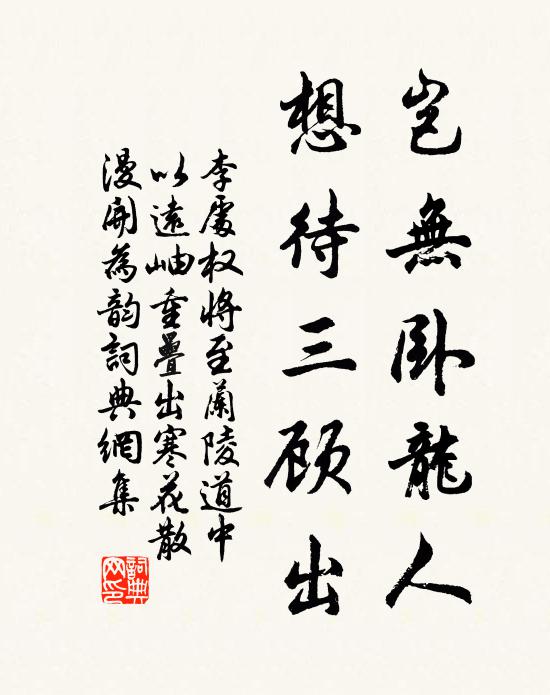 豈無臥龍人
想待三顾出
李處权将至蘭陵道中
以遠岫重疊出寒花散
漫開為韵詞典網集
詞典网印